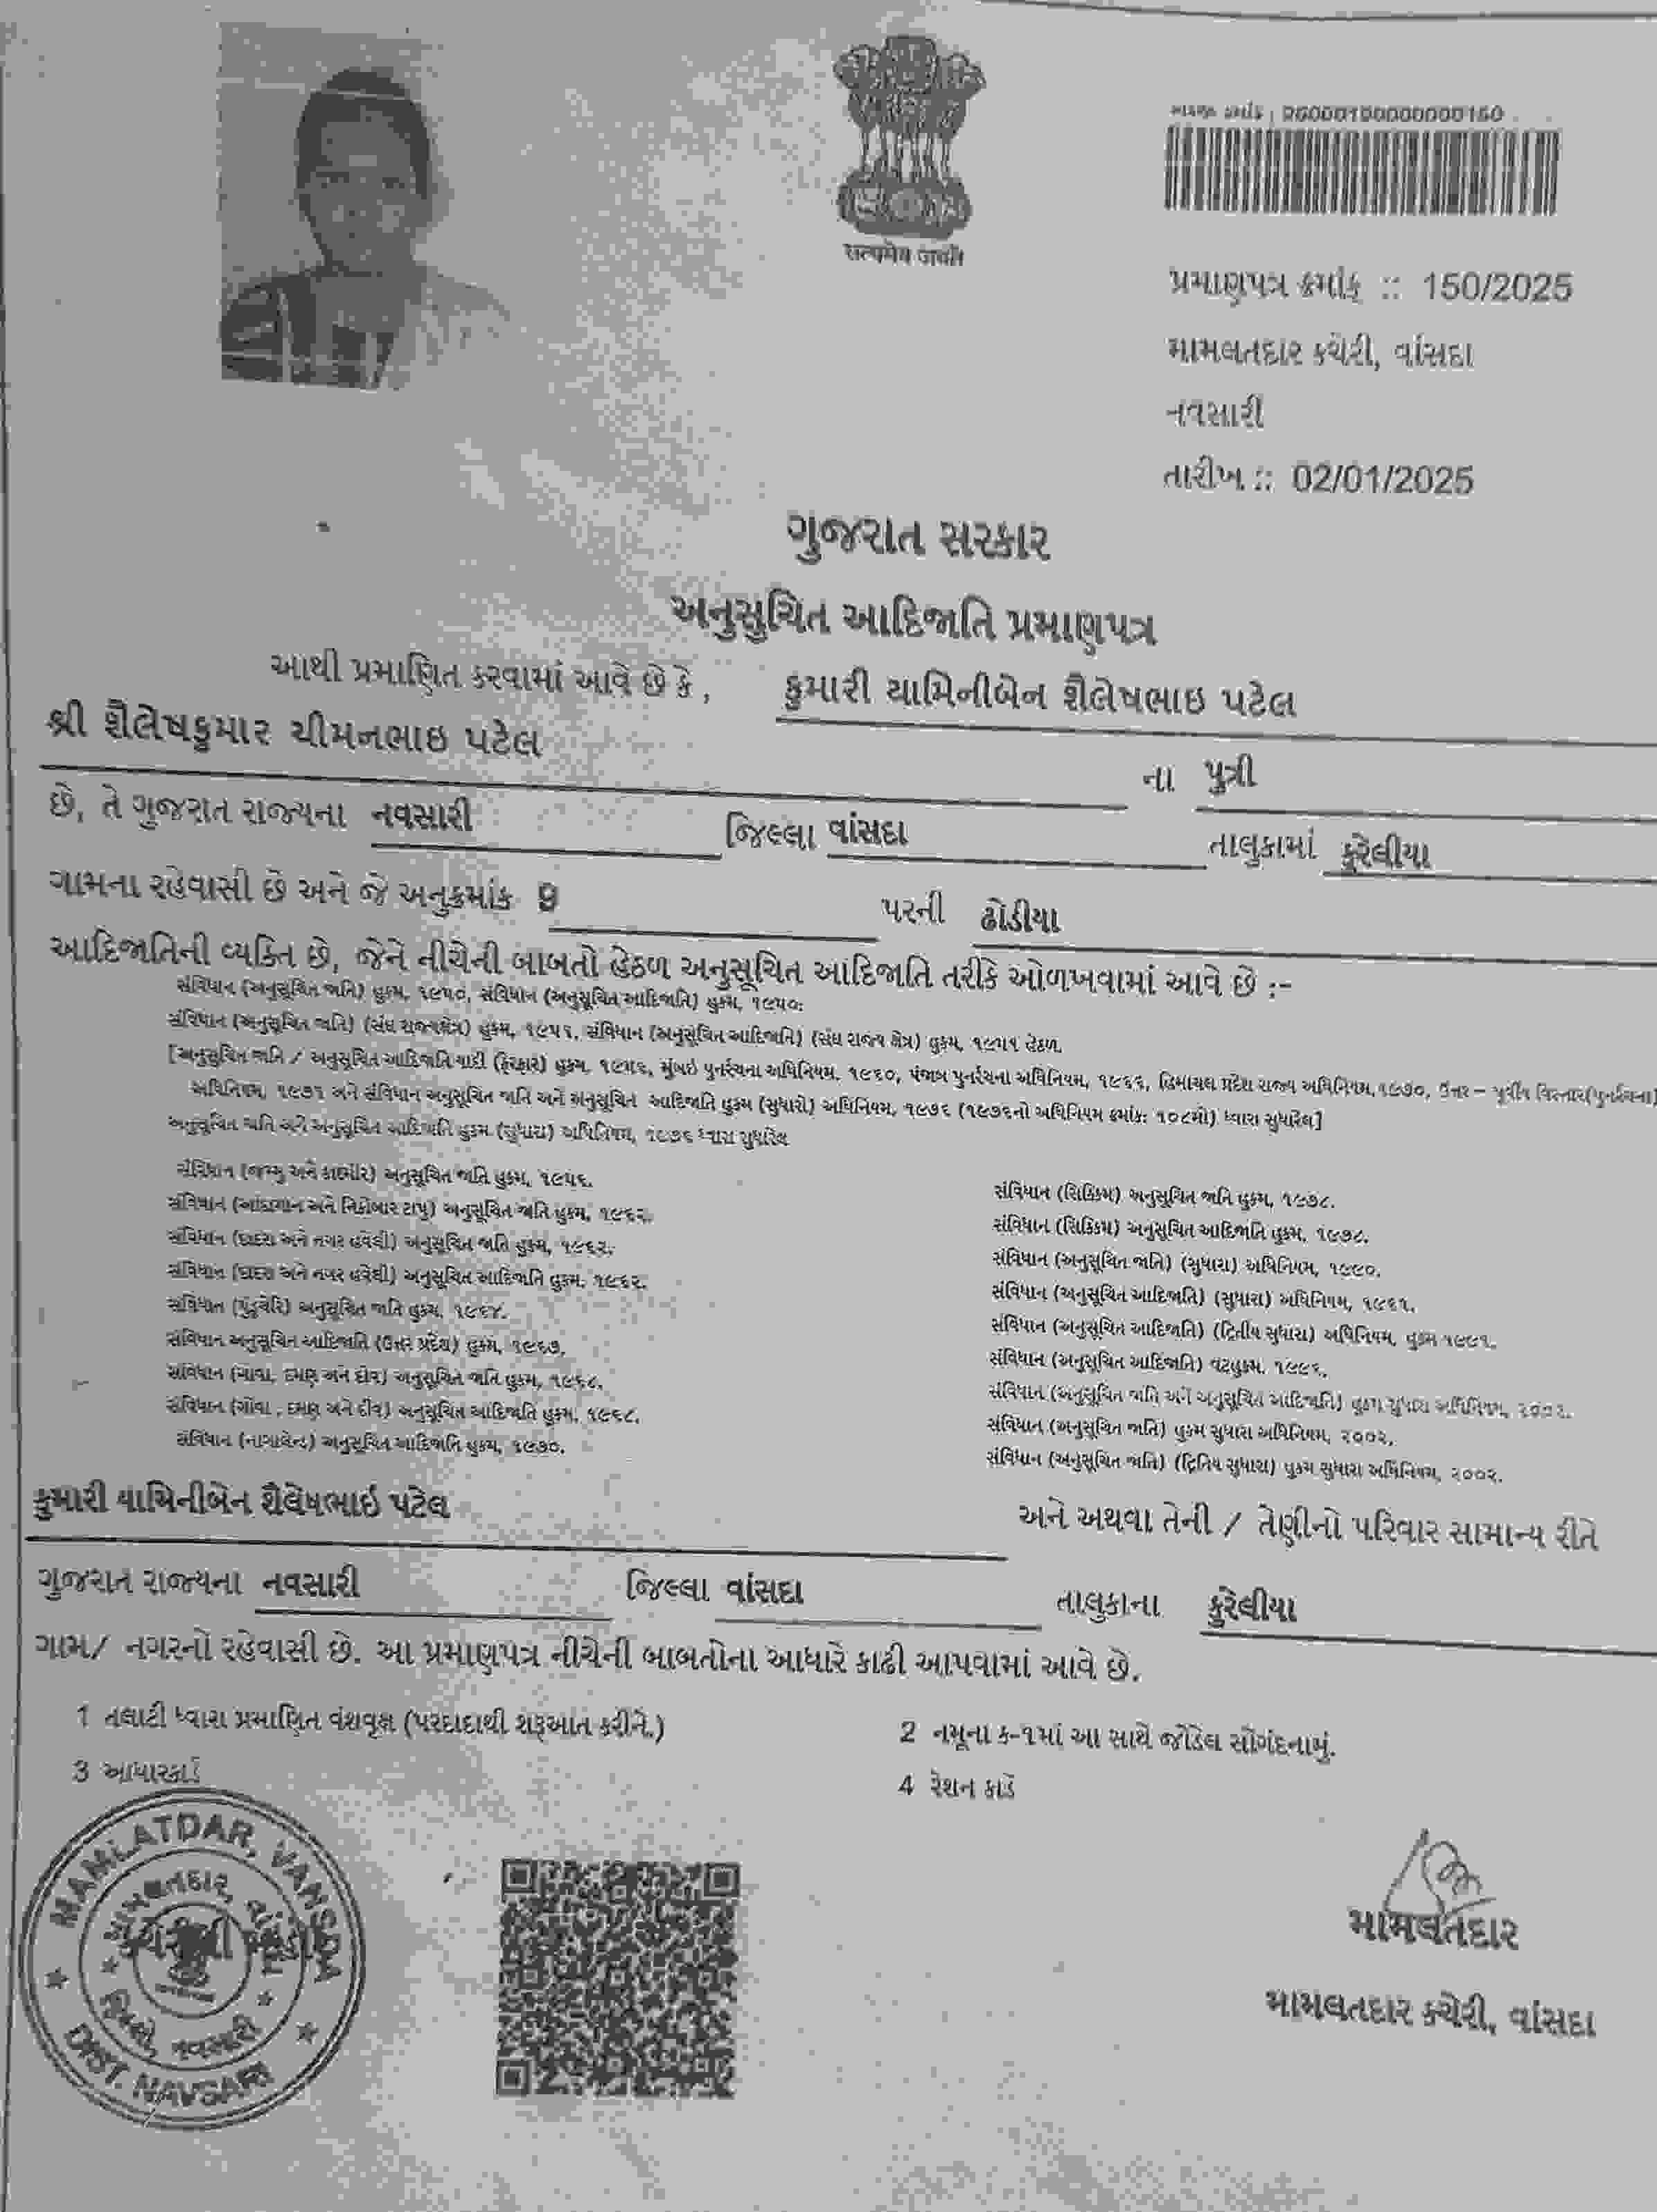 सत्यमेव जयते
પ્રમાણપત્ર ક્રમાંક :: 150/2025
મામલતદાર કચેરી, વાંસદા
નવસારી
તારીખ :: 02/01/2025
ગુજરાત સરકાર
અનુસુચિત આદિજાતિ પ્રમાણપત્ર
આથી પ્રમાણિત કરવામાં આવે છે કે , કુમારી યામિનીબેન શૈલેષભાઇ પટેલ
શ્રી શૈલેષકુમાર ચીમનભાઇ પટેલ ના પુત્રી
છે, તે ગુજરાત રાજ્યના નવસારી જિલ્લા વાંસદા તાલુકામાં કુરેલીયા
ગામના રહેવાસી છે અને જે અનુક્રમાંક 9 પરની ઢોડીયા
આદિજાતિની વ્યક્તિ છે, જેને નીચેની બાબતો હેઠળ અનુસૂચિત આદિજાતિ તરીકે ઓળખવામાં આવે છે :-
સંવિધાન (અનુસૂચિત જાતિ) હુકમ, ૧૯૫૦, સંવિધાન (અનુસૂચિત આદિજાતિ) હુકમ, ૧૯૫૦:
સંવિધાન (અનુસૂચિત જાતિ) (સંઘ રાજ્યક્ષેત્ર) હુકમ, ૧૯૫૧, સંવિધાન (અનુસૂચિત આદિજાતિ) (સંઘ રાજ્ય ક્ષેત્ર) હુકમ, ૧૯૫૧ હેઠળ.
[અનુસૂચિત જાતિ / અનુસૂચિત આદિજાતિ યાદી (ફેરફાર) હુકમ, ૧૯૫૬, મુંબઇ પુનર્રચના અધિનિયમ, ૧૯૬૦, પંજાબ પુનર્રચના અધિનિયમ, ૧૯૬૬, હિમાચલ પ્રદેશ રાજ્ય અધિનિયમ,૧૯૭૦, ઉત્તર – પૂર્વીય વિસ્તાર(પુનર્રચના)
અધિનિયમ, ૧૯૭૧ અને સંવિધાન અનુસૂચિત જાતિ અને અનુસૂચિત આદિજાતિ હુકમ (સુધારો) અધિનિયમ, ૧૯૭૬ (૧૯૭૬નો અધિનિયમ ક્રમાંક: ૧૦૮મો) ધ્વારા સુધારેલ]
અનુસૂચિત જાતિ અને અનુસૂચિત આદિજાતિ હુકમ (સુધારા) અધિનિયમ, ૧૯૭૬ ધ્વારા સુધારેલ
સંવિધાન (જમ્મુ અને કાશ્મીર) અનુસૂચિત જાતિ હુકમ, ૧૯૫૬.
સંવિધાન (આંદામાન અને નિકોબાર ટાપુ) અનુસૂચિત જાતિ હુકમ, ૧૯૬૨.
સંવિધાન (દાદરા અને નગર હવેલી) અનુસૂચિત જાતિ હુકમ, ૧૯૬૨.
સંવિધાન (દાદરા અને નગર હવેલી) અનુસૂચિત આદિજાતિ હુકમ, ૧૯૬૨.
સંવિધાન (પુંડુચેરિ) અનુસૂચિત જાતિ હુકમ, ૧૯૬૪.
સંવિધાન અનુસૂચિત આદિજાતિ (ઉત્તર પ્રદેશ) હુકમ, ૧૯૬૭,
સંવિધાન (ગોવા, દમણ અને દીવ) અનુસૂચિત જાતિ હુકમ, ૧૯૬૮.
સંવિધાન (ગોવા , દમણ અને દીવ) અનુસૂચિત આદિજાતિ હુકમ, ૧૯૬૮.
સંવિધાન (નાગાલેન્ડ) અનુસૂચિત આદિજાતિ હુકમ, ૧૯૭૦.
સંવિધાન (સિક્કિમ) અનુસૂચિત જાતિ હુકમ, ૧૯૭૮.
સંવિધાન (સિક્કિમ) અનુસૂચિત આદિજાતિ હુકમ, ૧૯૭૮.
સંવિધાન (અનુસૂચિત જાતિ) (સુધારા) અધિનિયમ, ૧૯૯૦.
સંવિધાન (અનુસૂચિત આદિજાતિ) (સુધારા) અધિનિયમ, ૧૯૬૧.
સંવિધાન (અનુસૂચિત આદિજાતિ) (દ્વિતીય સુધારા) અધિનિયમ, હુકમ ૧૯૯૧.
સંવિધાન (અનુસૂચિત આદિજાતિ) વટહુકમ. ૧૯૯૬.
સંવિધાન (અનુસૂચિત જાતિ અને અનુસૂચિત આદિજાતિ) હુકમ સુધારા અધિનિયમ, ૨૦૦૨.
સંવિધાન (અનુસૂચિત જાતિ) હુકમ સુધારા અધિનિયમ, ૨૦૦૨.
સંવિધાન (અનુસૂચિત જાતિ) (દ્વિતિય સુધારા) હુકમ સુધારા અધિનિયમ, ૨૦૦૨.
કુમારી યામિનીબેન શૈલેષભાઇ પટેલ અને અથવા તેની / તેણીનો પરિવાર સામાન્ય રીતે
ગુજરાત રાજ્યના નવસારી જિલ્લા વાંસદા તાલુકાના કુરેલીયા
ગામ/ નગરનો રહેવાસી છે. આ પ્રમાણપત્ર નીચેની બાબતોના આધારે કાઢી આપવામાં આવે છે.
1 તલાટી ધ્વારા પ્રમાણિત વંશવૃક્ષ (પરદાદાથી શરૂઆત કરીને.)
2 નમૂના ક-૧માં આ સાથે જોડેલ સોગંદનામું.
3 આધારકાર્ડ
4 રેશન કાર્ડ
MAMLATDAR, VANSDA
મામલતદાર, વાંસદા
જિલ્લો, નવસારી
DIST. NAVSARI
મામલતદાર
મામલતદાર કચેરી, વાંસદા